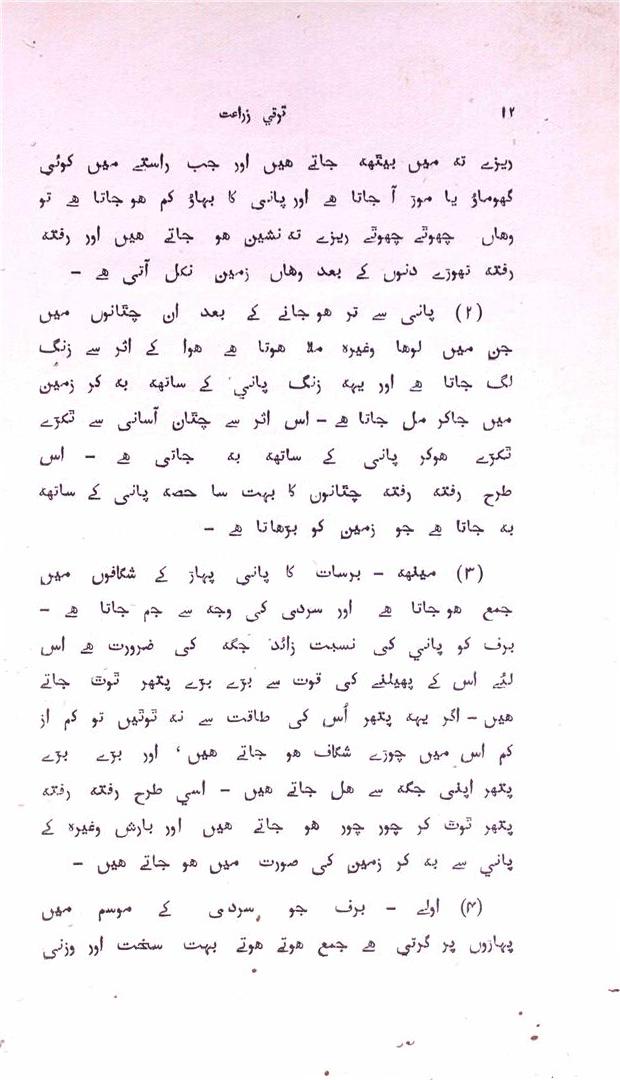 ۱۲
ترقي زراعت
ریزے تہ میں بیٹھہ جاتے هیں اور جب راستے میں کوئي
گھوماؤ یا موڑ آ جاتا هے اور پانی کا بہاؤ کم هو جاتا هے تو
وهاں چھوٹے چھوٹے ریزے تہ نشین هو جاتے هیں اور رفتہ
رفتہ تھوڑے دنوں کے بعد وهاں زمین نکل آتی هے –
(۲) پانی سے تر هو جانے کے بعد ان چٹانوں میں
جن میں لوها وغیرہ ملا هوتا هے هوا کے اثر سے زنگ
لگ جاتا هے اور یہہ زنگ پانی کے ساتھہ بہ کر زمین
میں جاکر مل جاتا هے – اس اثر سے چٹان آسانی سے ٹکڑے
ٹکڑے هوکر پانی کے ساتھہ بہ جاتی هے – اس
طرح رفتہ رفتہ چٹانوں کا بہت سا حصہ پانی کے ساتھہ
بہ جاتا هے جو زمین کو بڑهاتا هے –
(۳) مینھہ – برسات کا پانی پہاڑ کے شگافوں میں
جمع هو جاتا هے اور سردی کی وجہ سے جم جاتا هے –
برف کو پاني کی نسبت زائد جگہ کی ضرورت هے اس
لئے اس کے پھیلنے کی قوت سے بڑے بڑے پتھر ٹوٹ جاتے
هیں – اگر یہہ پتھر اُس کی طاقت سے نہ ٹوٹیں تو کم از
کم اس میں چوڑے شگاف هو جاتے هیں، اور بڑے بڑے
پتھر اپنی جگہ سے هل جاتے هیں – اسي طرح رفتہ رفتہ
پتھر ٹوٹ کر چور چور هو جاتے هیں اور بارش وغیرہ کے
پاني سے بہ کر زمین کی صورت میں هو جاتے هیں –
(۴) اولے – برف جو سردی کے موسم میں
پہاڑوں پر گرتي هے جمع هوتے هوتے بہت سخت اور وزنی